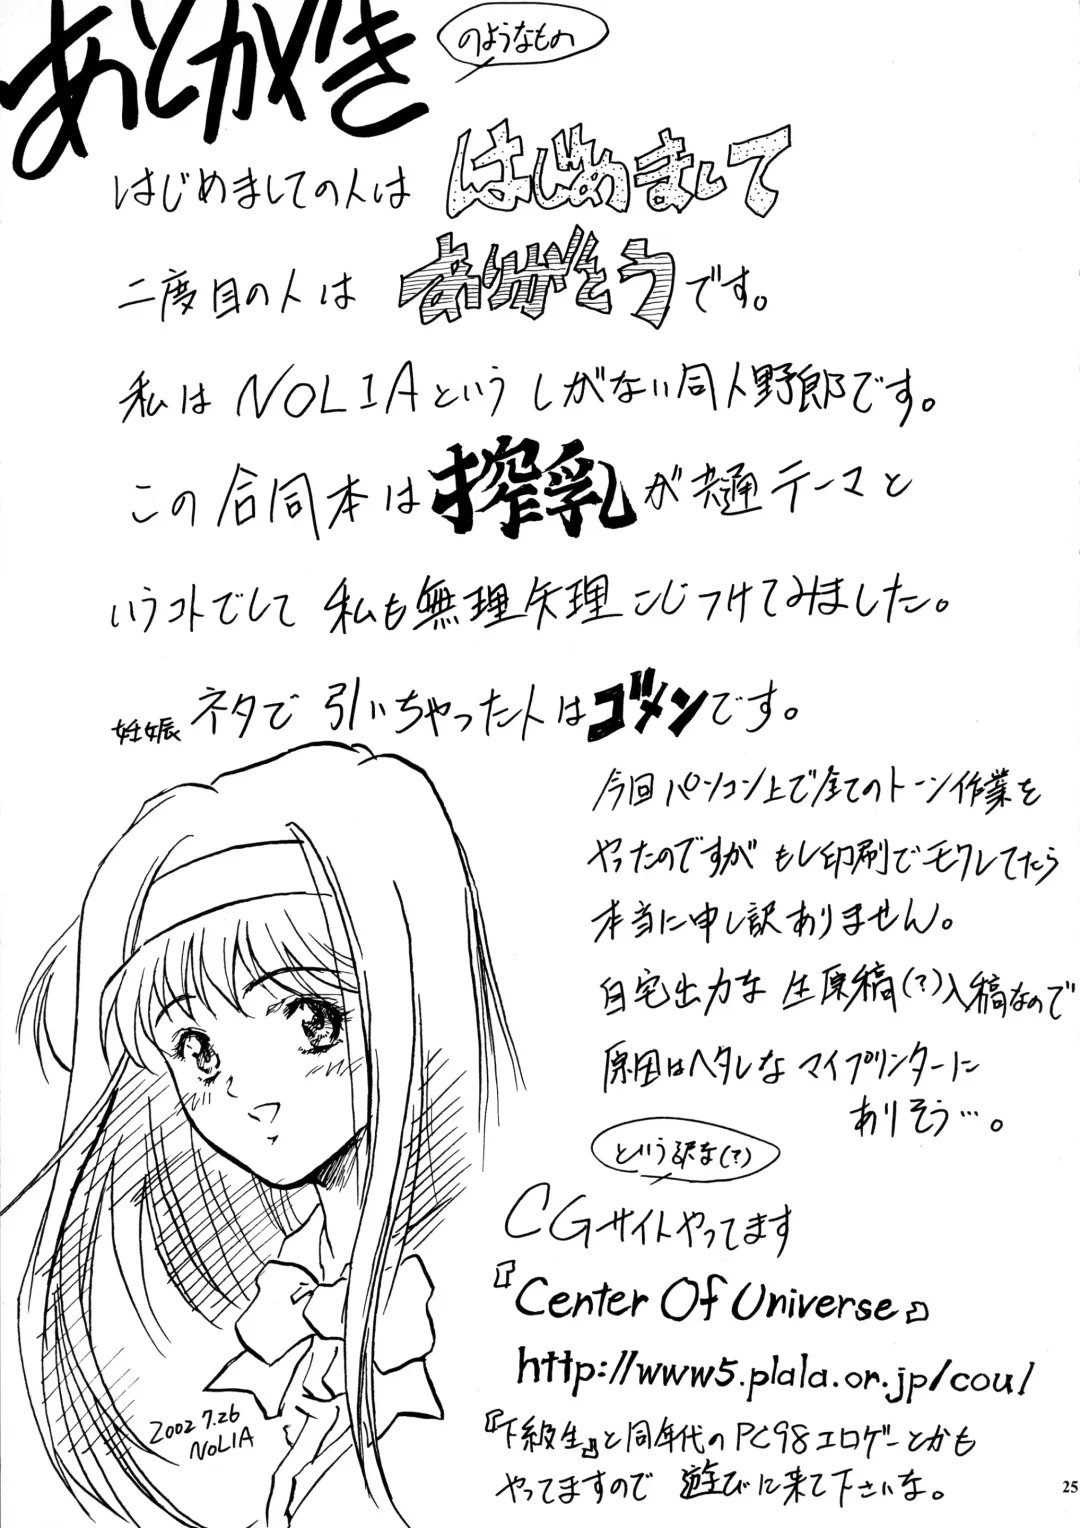 あとがき
のようなもの
はじめましての人は はじめまして
二度目の人は ありがとうです。
私はNOLIAというしがない同人野郎です。
この合同本は搾乳が共通テーマと
いうコトでして私も無理矢理こじつけてみました。
妊娠ネタで引いちゃった人はゴメンです。
今回パソコン上で全てのトーン作業を
やったのですがもし印刷でモクレてたら
本当に申し訳ありません。
自宅出力な生原稿(?)入稿なので
原因はヘタレなマイプリンターに
ありそう…。
という訳な(?)
CGサイトやってます
『Center Of Universe』
http://www5.plala.or.jp/cou/
『下級生』と同年代のPC98エロゲーとかも
やってますので遊びに来て下さいな。
2002 7.26
NOLIA
25